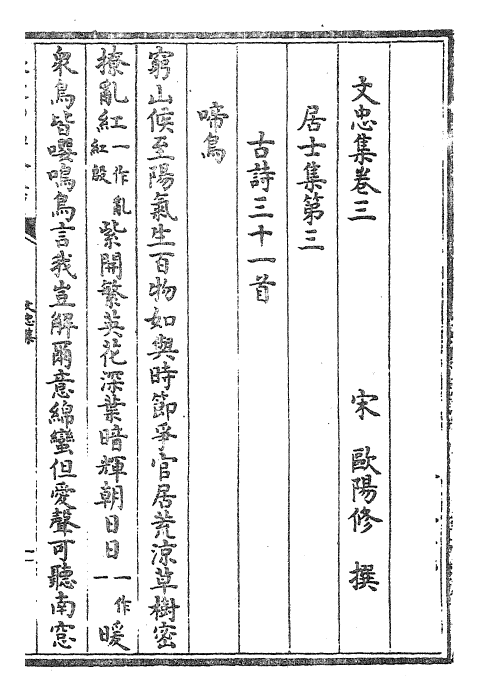 文忠集卷三　宋　歐陽修　撰
居士集第三
古詩三十一首
啼鳥
窮山候至陽氣生百物如與時節爭官居荒涼草樹密
撩亂紅一作亂紅殷紫開繁英花深葉暗輝朝日日一作一暖
衆鳥皆嚶鳴鳥言我豈解爾意綿蠻但愛聲可聽南窓
文忠集